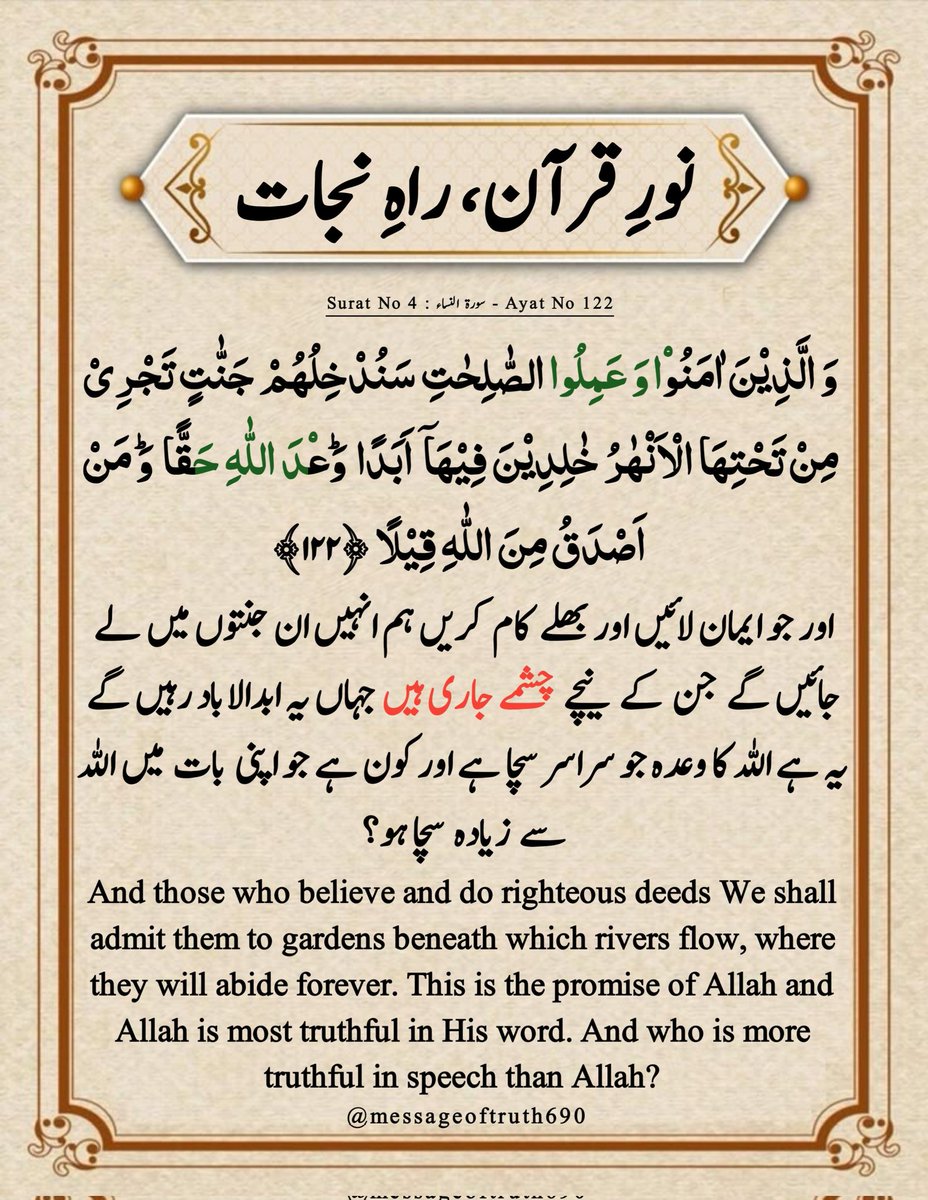 نورِ قرآن، راہِ نجات
Surat No 4 : سورة النساء - Ayat No 122
وَ الَّذِیْنَ اٰمَنُوْا وَ عَمِلُوا الصّٰلِحٰتِ سَنُدْخِلُهُمْ جَنّٰتٍ تَجْرِیْ
مِنْ تَحْتِهَا الْاَنْهٰرُ خٰلِدِیْنَ فِیْهَاۤ اَبَدًا ؕ وَعْدَ اللّٰهِ حَقًّا ؕ وَ مَنْ
اَصْدَقُ مِنَ اللّٰهِ قِیْلًا ﴿۱۲۲﴾
اور جو ایمان لائیں اور بھلے کام کریں ہم انہیں ان جنتوں میں لے
جائیں گے جن کے نیچے چشمے جاری ہیں جہاں یہ ابدالاباد رہیں گے
یہ ہے اللہ کا وعدہ جو سراسر سچا ہے اور کون ہے جو اپنی بات میں اللہ
سے زیادہ سچا ہو؟
And those who believe and do righteous deeds We shall
admit them to gardens beneath which rivers flow, where
they will abide forever. This is the promise of Allah and
Allah is most truthful in His word. And who is more
truthful in speech than Allah?
@messageoftruth690